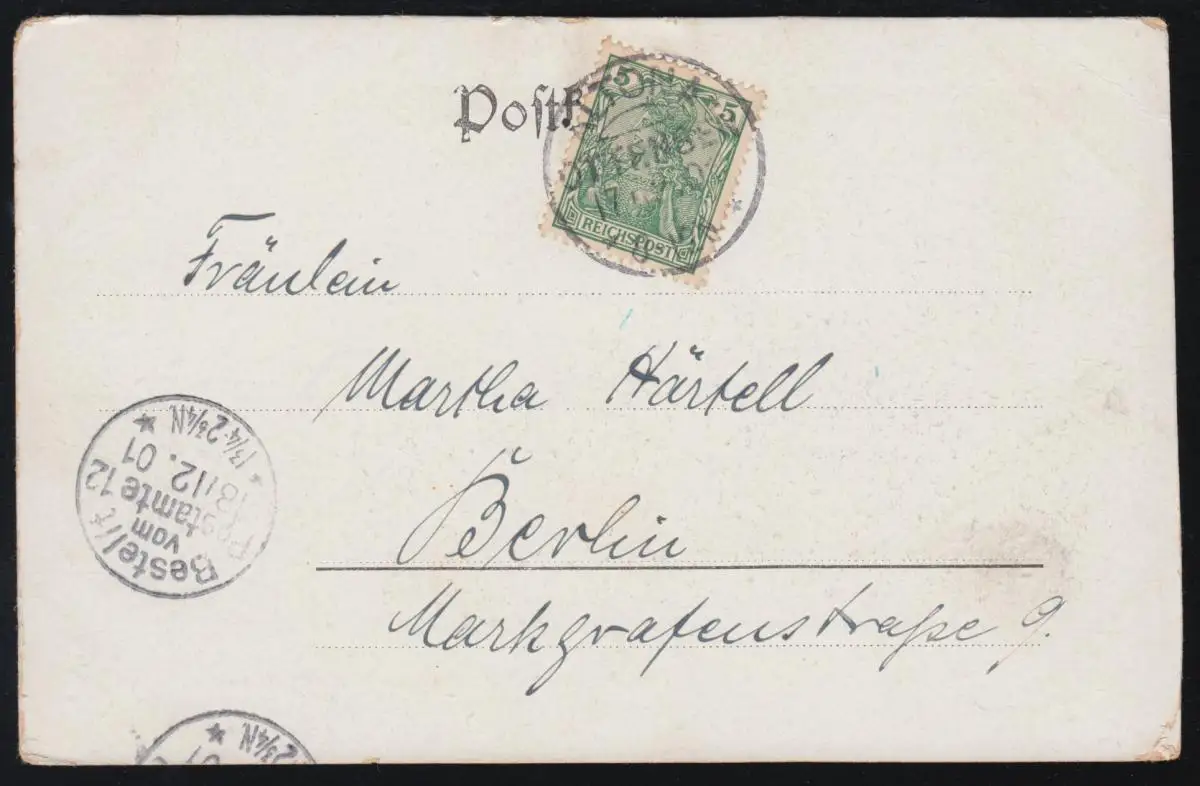 Postk
5 5
REICHSPOST
Fräulein
Martha Härtell
Berlin
Markgrafenstraße 9.
Bestellt
vom
Postamte 12
13/12. 01
* 1¾-2¾N *
01
2¾N *